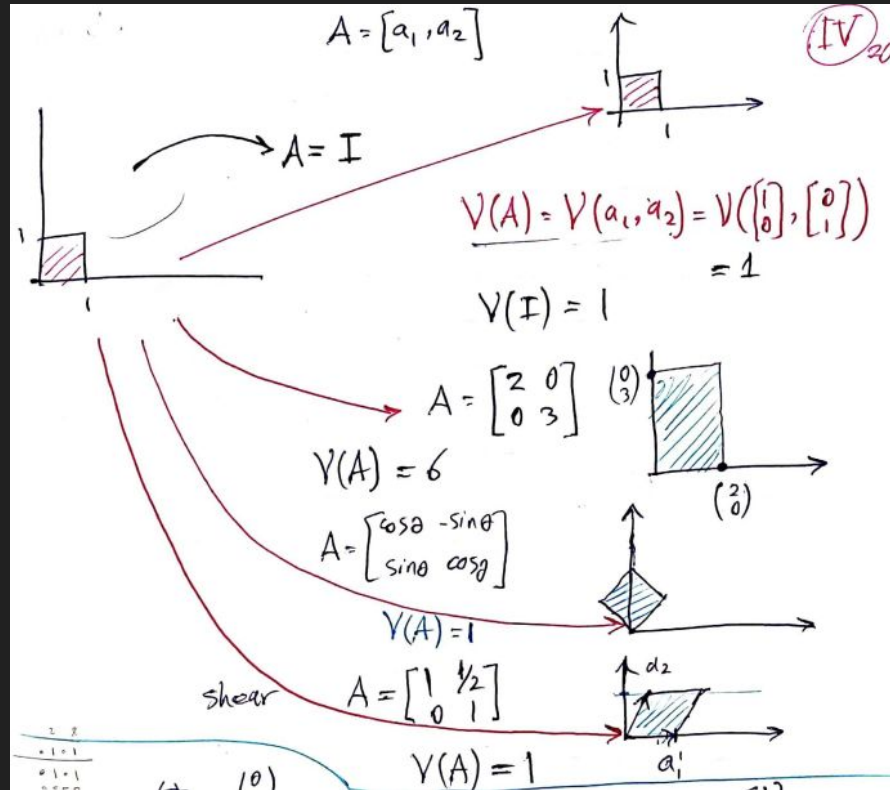 A = [a₁, a₂]
IV 20
1
1
A = I
1
1
V(A) = V(a₁, a₂) = V([1 0], [0 1])
= 1
V(I) = 1
A = [2 0
0 3]
(0 3)
V(A) = 6
(2 0)
A = [cosθ -sinθ
sinθ cosθ]
V(A) = 1
shear
A = [1 1/2
0 1]
a₂
a₁
V(A) = 1